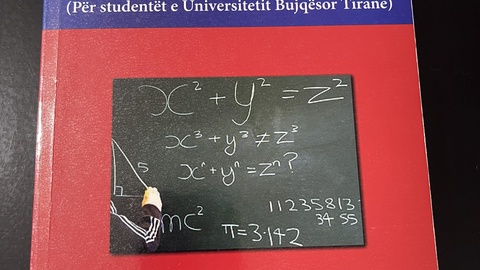 (Për studentët e Universitetit Bujqësor Tiranë)
x² + y² = z²
x³ + y³ ≠ z³
xⁿ + yⁿ = zⁿ ?
5
11235813
34 55
mc²
π = 3.142